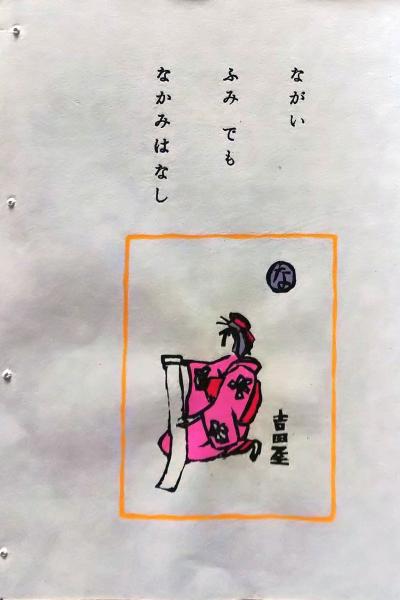 ながい
ふみ でも
なかみはなし
な
吉田屋